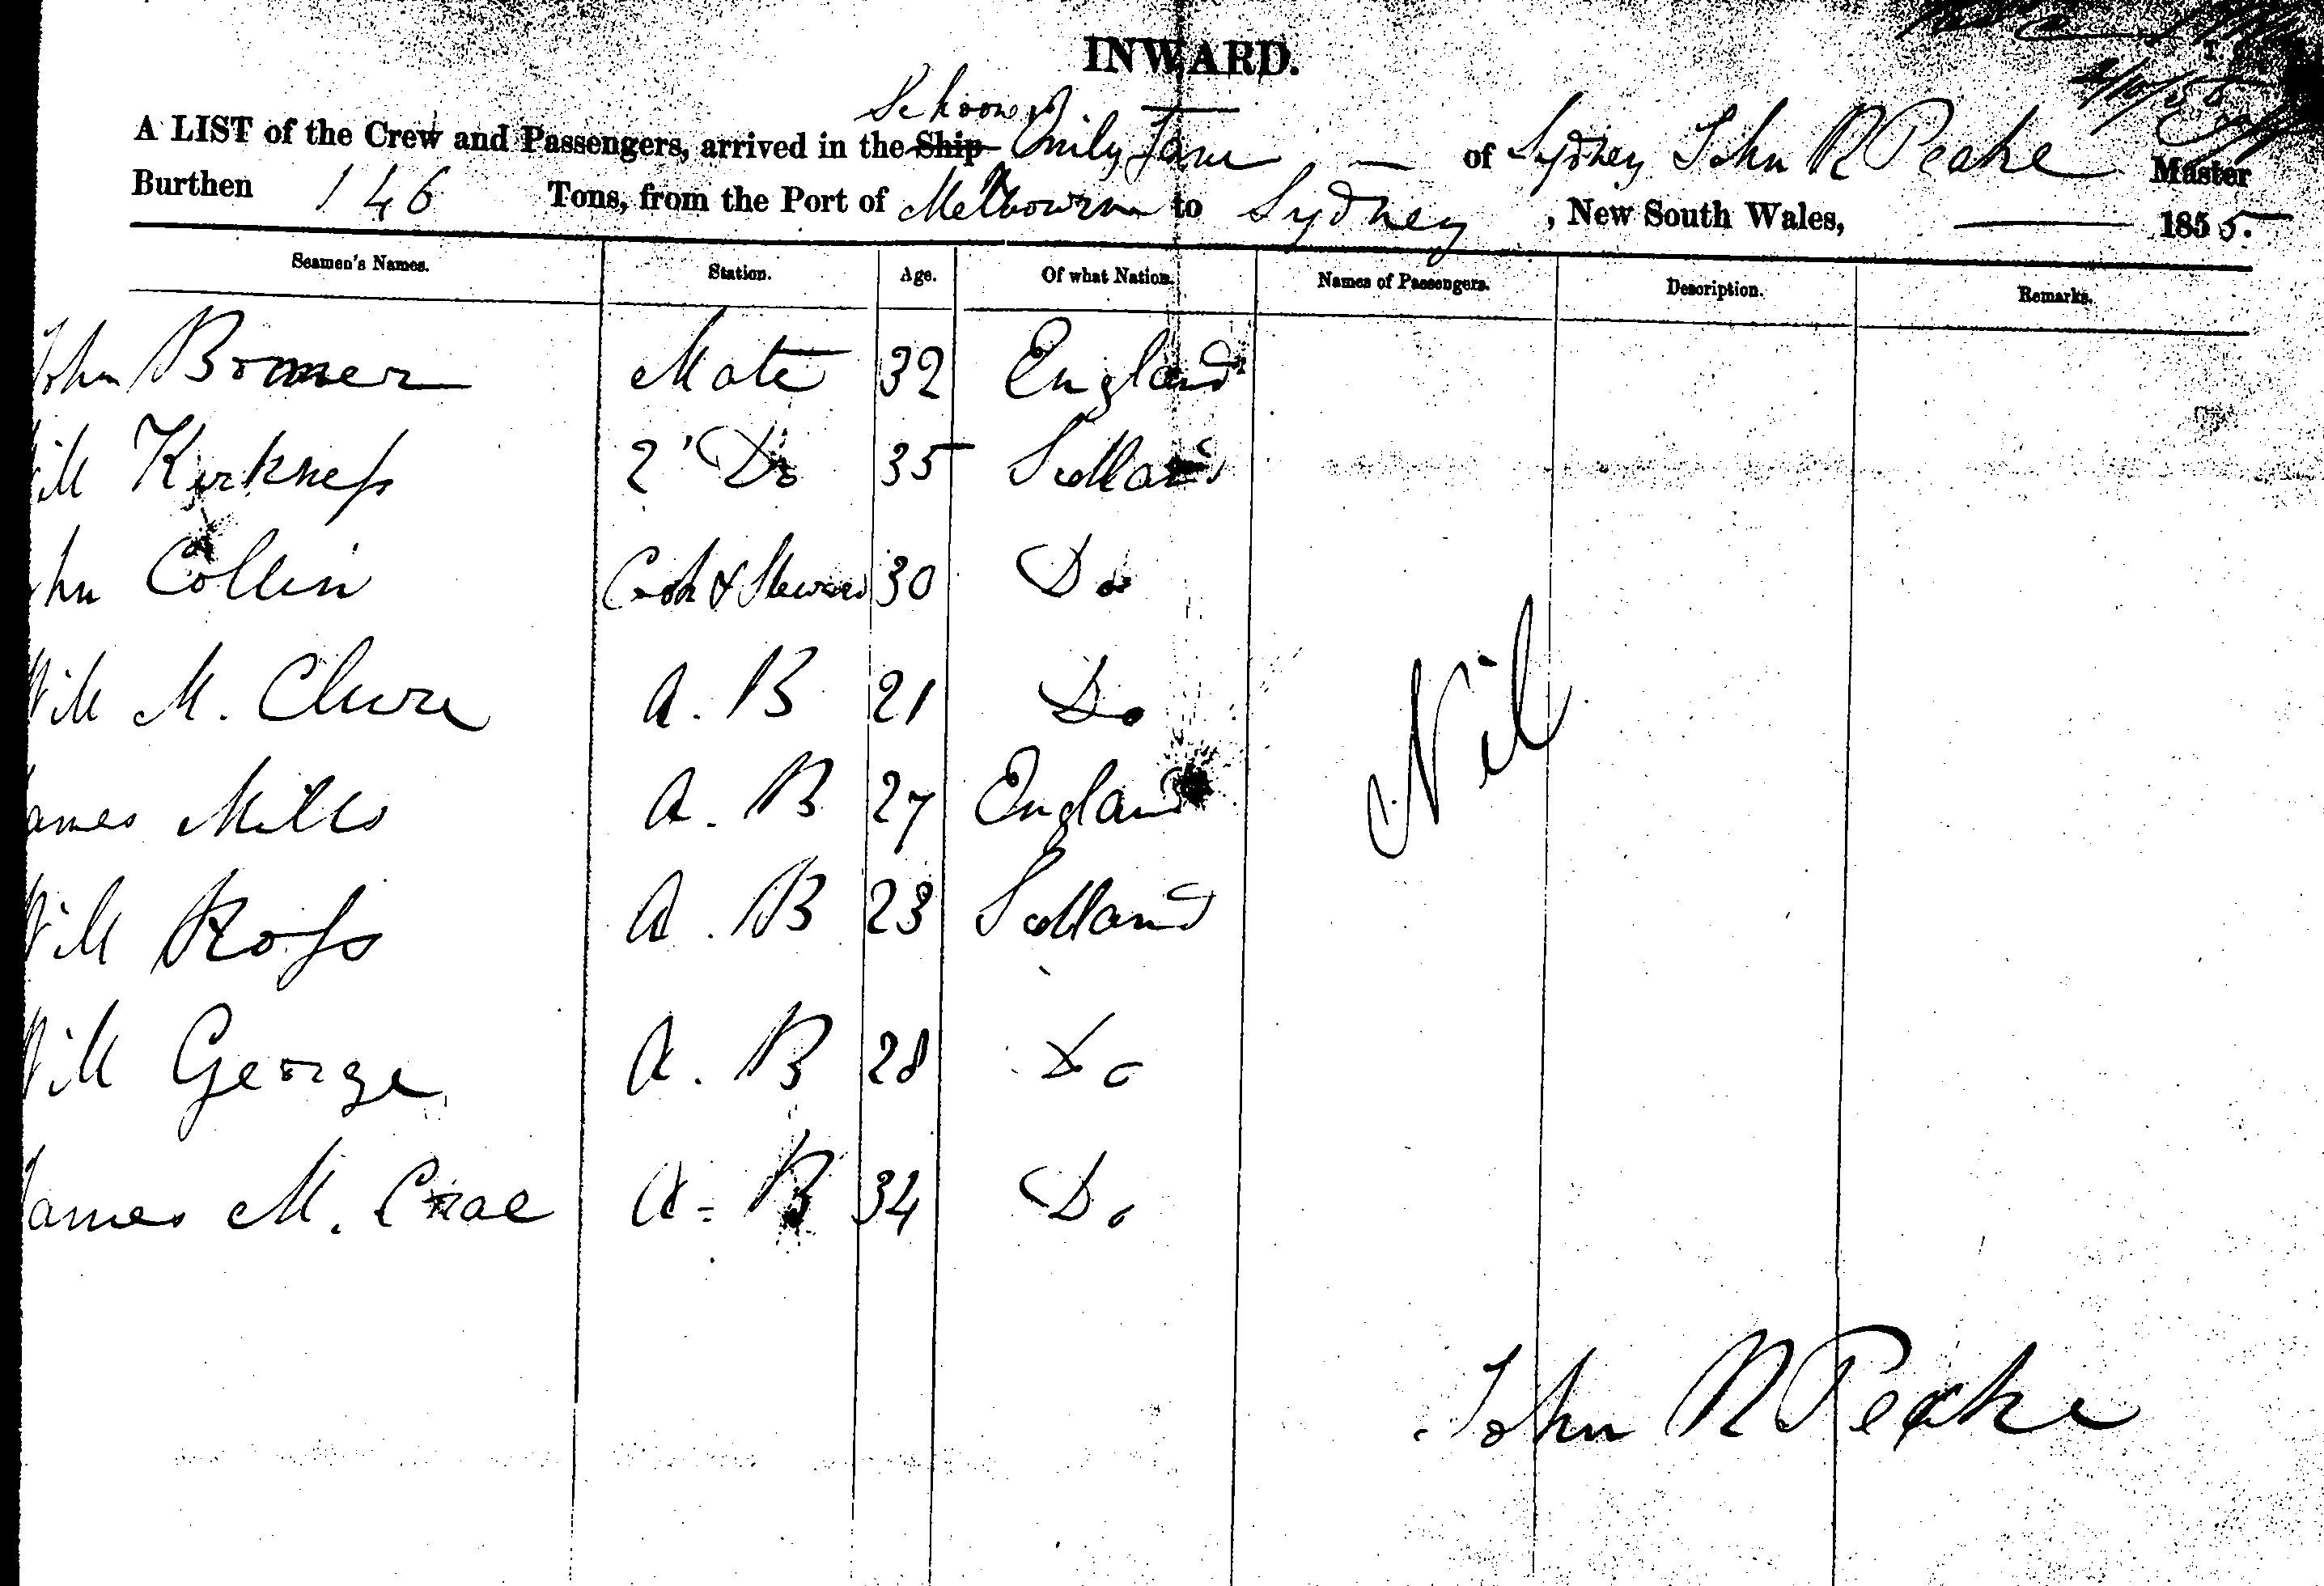 INWARD.
Schooner
A LIST of the Crew and Passengers, arrived in the Ship Emily Jane — of Sydney John R Peake Master
Burthen 146 Tons, from the Port of Melbourne to Sydney, New South Wales, — 1855.
Seamen's Names. Station. Age. Of what Nation. Names of Passengers. Description. Remarks.
John Bomer Mate 32 England
Will Kirkness 2 Do 35 Scotland
John Collin Cook & Steward 30 Do
Will M. Clure A. B 21 Do
James Mills A. B 27 England
Nil
Will Ross A. B 23 Scotland
Will George A. B 28 Do
James M. Crae A. B 34 Do
John R Peake